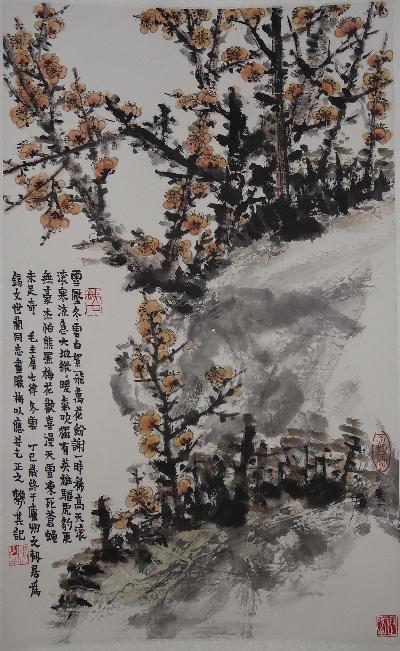 雪壓冬雲白絮飛萬花紛謝一時稀高天滾
滾寒流急大地微微暖氣吹獨有英雄驅虎豹更
無豪杰怕熊羆梅花歡喜漫天雪凍死蒼蠅
未足奇 毛主席七律冬雲 丁巳歲終于廬州之
世蘭同志畫臘梅以應并乞正之